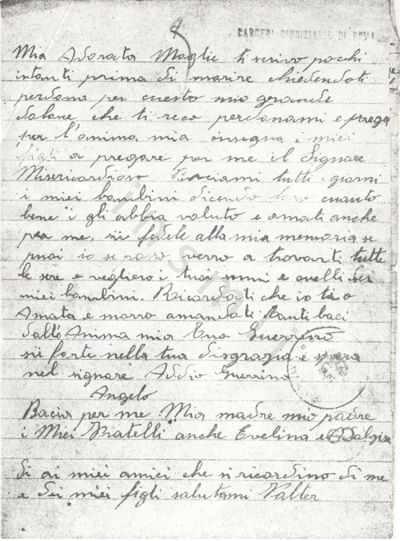 CARCERI GIUDIZIARIE DI ROMA
Mia Adorata Moglie ti scrivo pochi
istanti prima di morire chiedendoti
perdono per questo mio gerande
dolore che ti reco perdonami e prega
per l'anima mia insegna i miei
figli a pregare per me il Signore
Misericordioso Baciami tutti i giorni
i miei bambini dicendo loro quanto
bene i gli abbia voluto e amati anche
per me, sii fedele alla mia memoria se
puoi io se posso verro a trovarti tutte
le sere e vegliero i tuoi sonni e quelli dei
miei bambini. Ricordati che io ti o
Amata e morro amandoti tanti baci
dall'Anima mia tuo Guerrino
sii forte nella tua disgrazia e spera
nel signore Addio Guerrino
Angelo
Bacia per me Mia madre mio padre
i Miei Fratelli anche Evelina e
Di ai miei amici che si ricordino di me
e dei miei figli salutami Valter